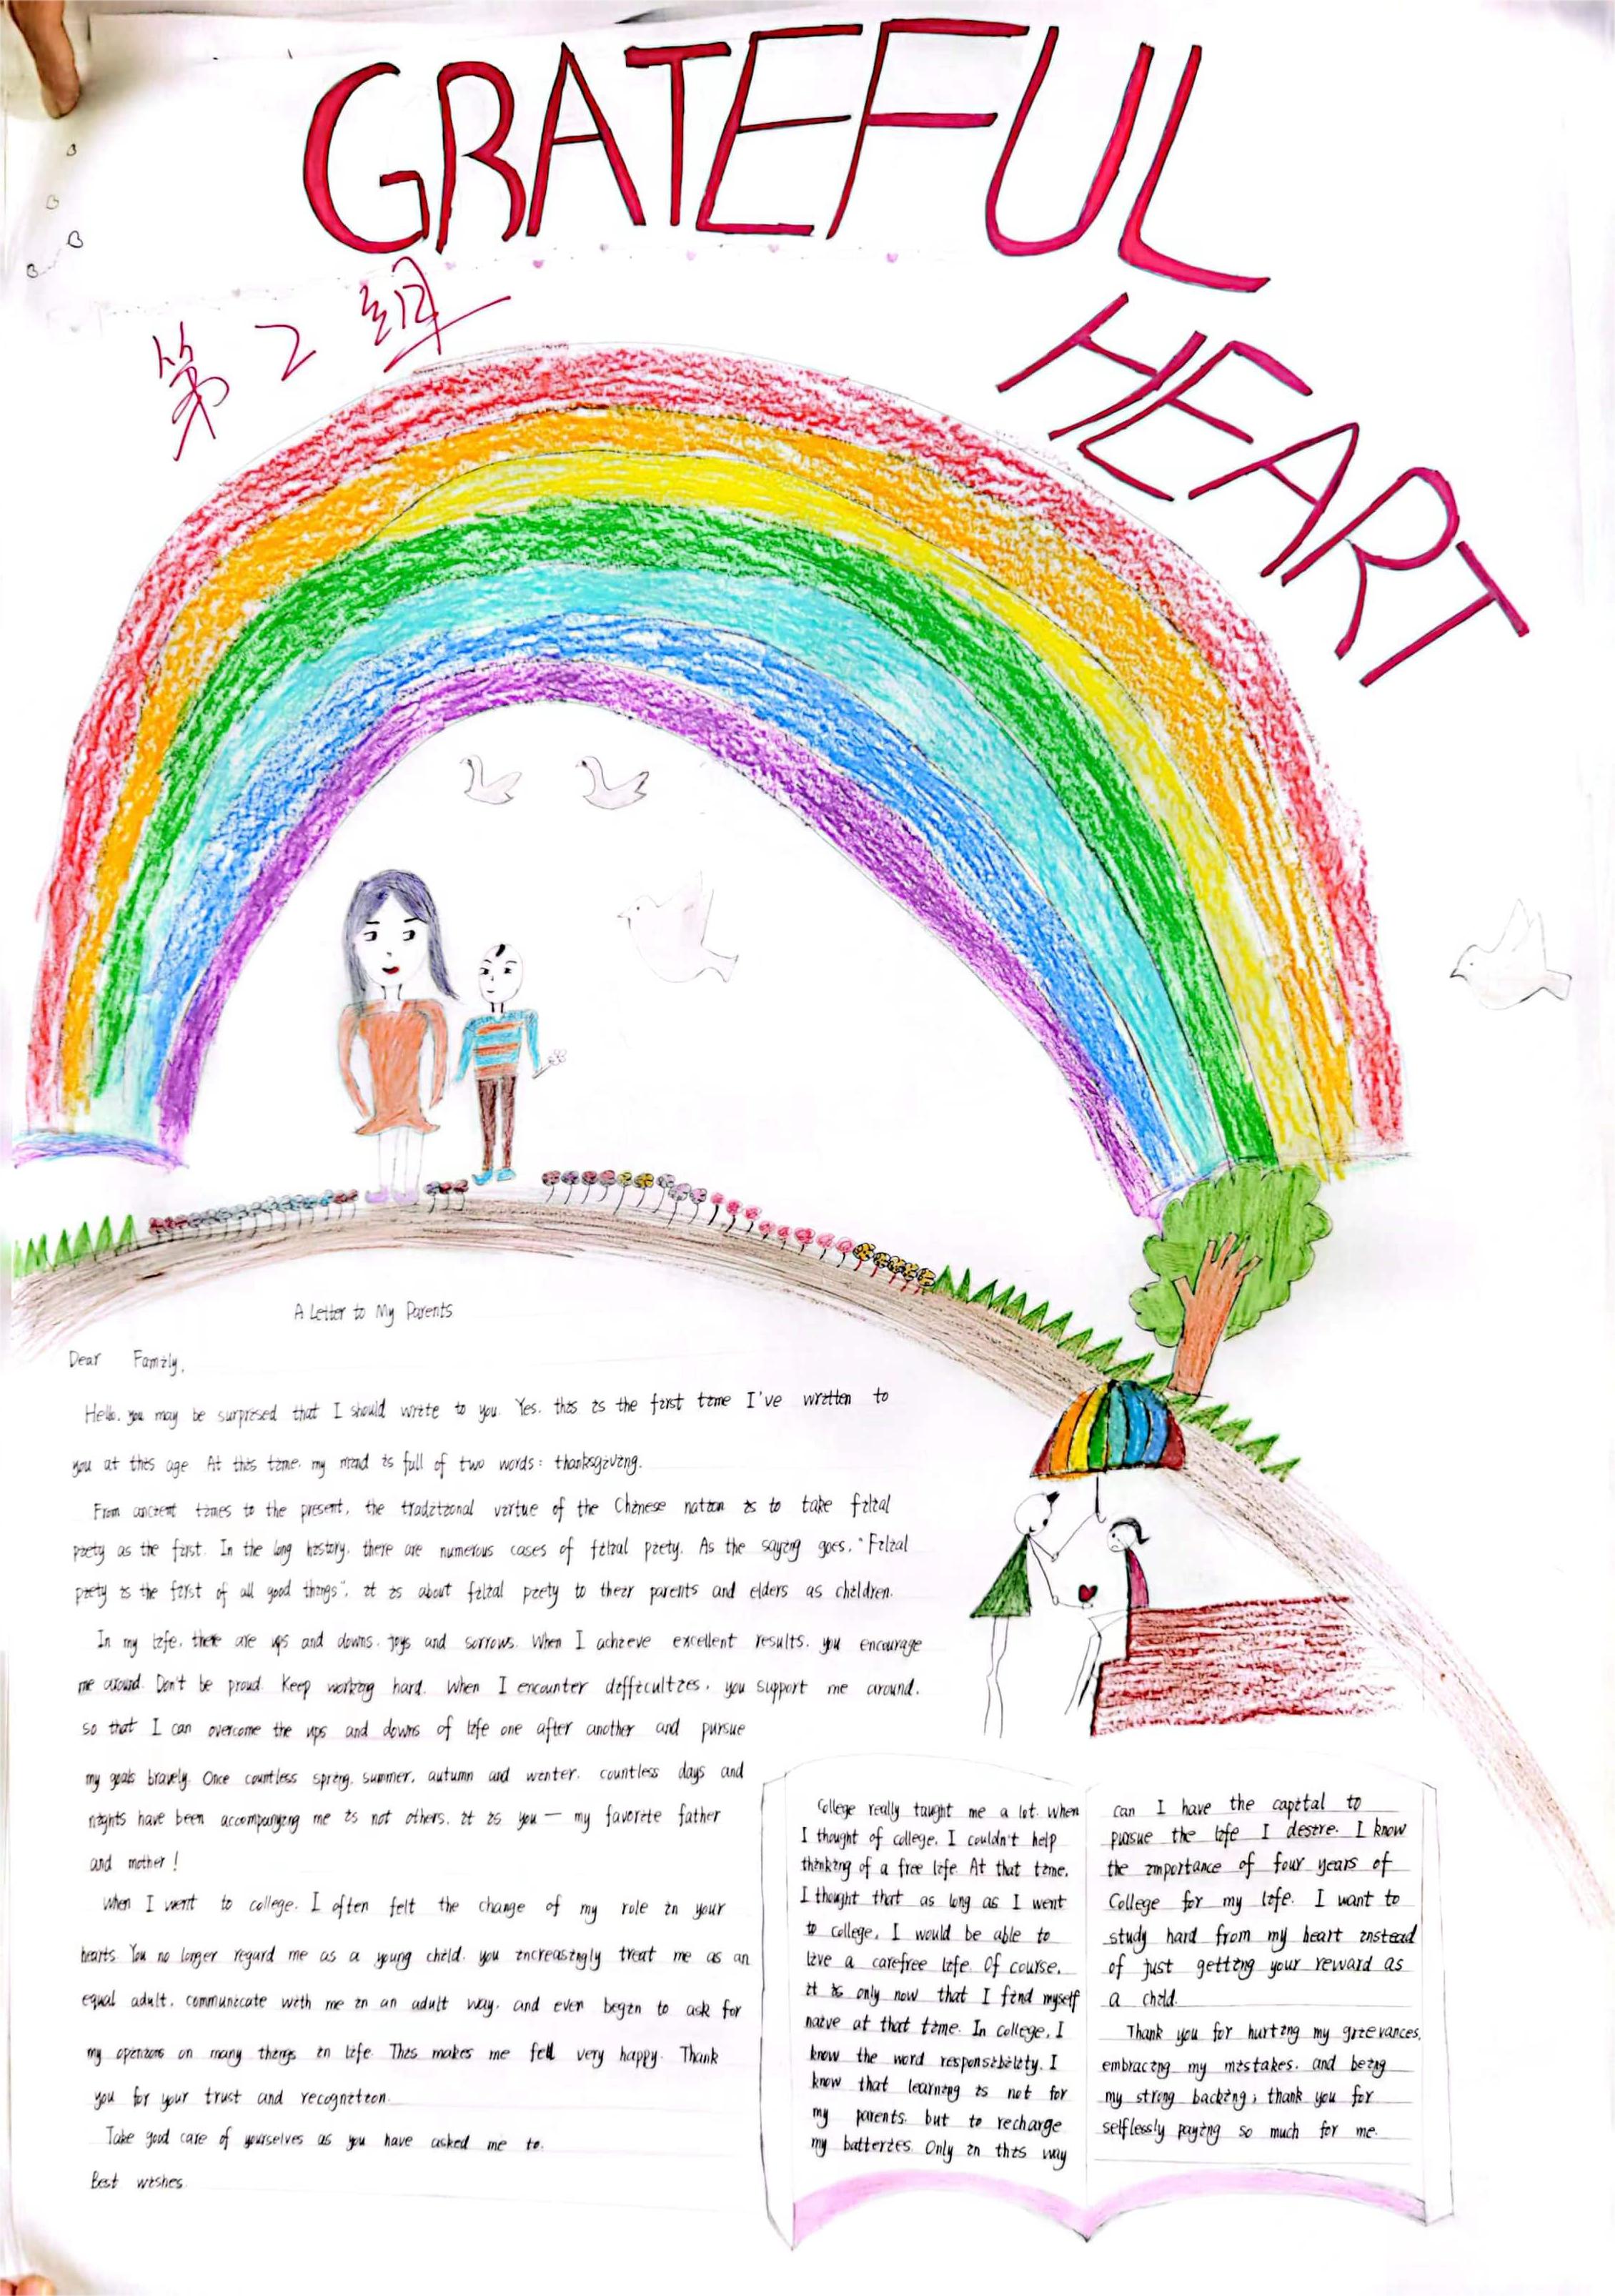 GRATEFUL
HEART
第2组
A Letter to My Parents
Dear Family,
Hello, you may be surprised that I should write to you. Yes, this is the first time I've written to
you at this age. At this time, my mind is full of two words: thanksgiving.
From ancient times to the present, the traditional virtue of the Chinese nation is to take filial
piety as the first. In the long history, there are numerous cases of filial piety. As the saying goes, "Filial
piety is the first of all good things", it is about filial piety to their parents and elders as children.
In my life, there are ups and downs, joys and sorrows. When I achieve excellent results, you encourage
me around. Don't be proud. Keep working hard. When I encounter difficulties, you support me around,
so that I can overcome the ups and downs of life one after another and pursue
my goals bravely. Once countless spring, summer, autumn and winter, countless days and
nights have been accompanying me is not others, it is you — my favorite father
and mother!
When I went to college, I often felt the change of my role in your
hearts. You no longer regard me as a young child, you increasingly treat me as an
equal adult, communicate with me in an adult way, and even begin to ask for
my opinions on many things in life. This makes me fell very happy. Thank
you for your trust and recognition.
Take good care of yourselves as you have asked me to.
Best wishes.
College really taught me a lot. When
I thought of college, I couldn't help
thinking of a free life. At that time,
I thought that as long as I went
to college, I would be able to
live a carefree life. Of course,
it is only now that I find myself
naive at that time. In College, I
know the word responsibility. I
know that learning is not for
my parents, but to recharge
my batteries. Only in this way
can I have the capital to
pursue the life I desire. I know
the importance of four years of
College for my life. I want to
study hard from my heart instead
of just getting your reward as
a child.
Thank you for hurting my grievances,
embracing my mistakes, and being
my strong backing; thank you for
selflessly paying so much for me.